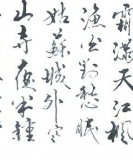 霜滿天江楓
漁火對愁眠
姑蘇城外寒
山寺夜半鐘